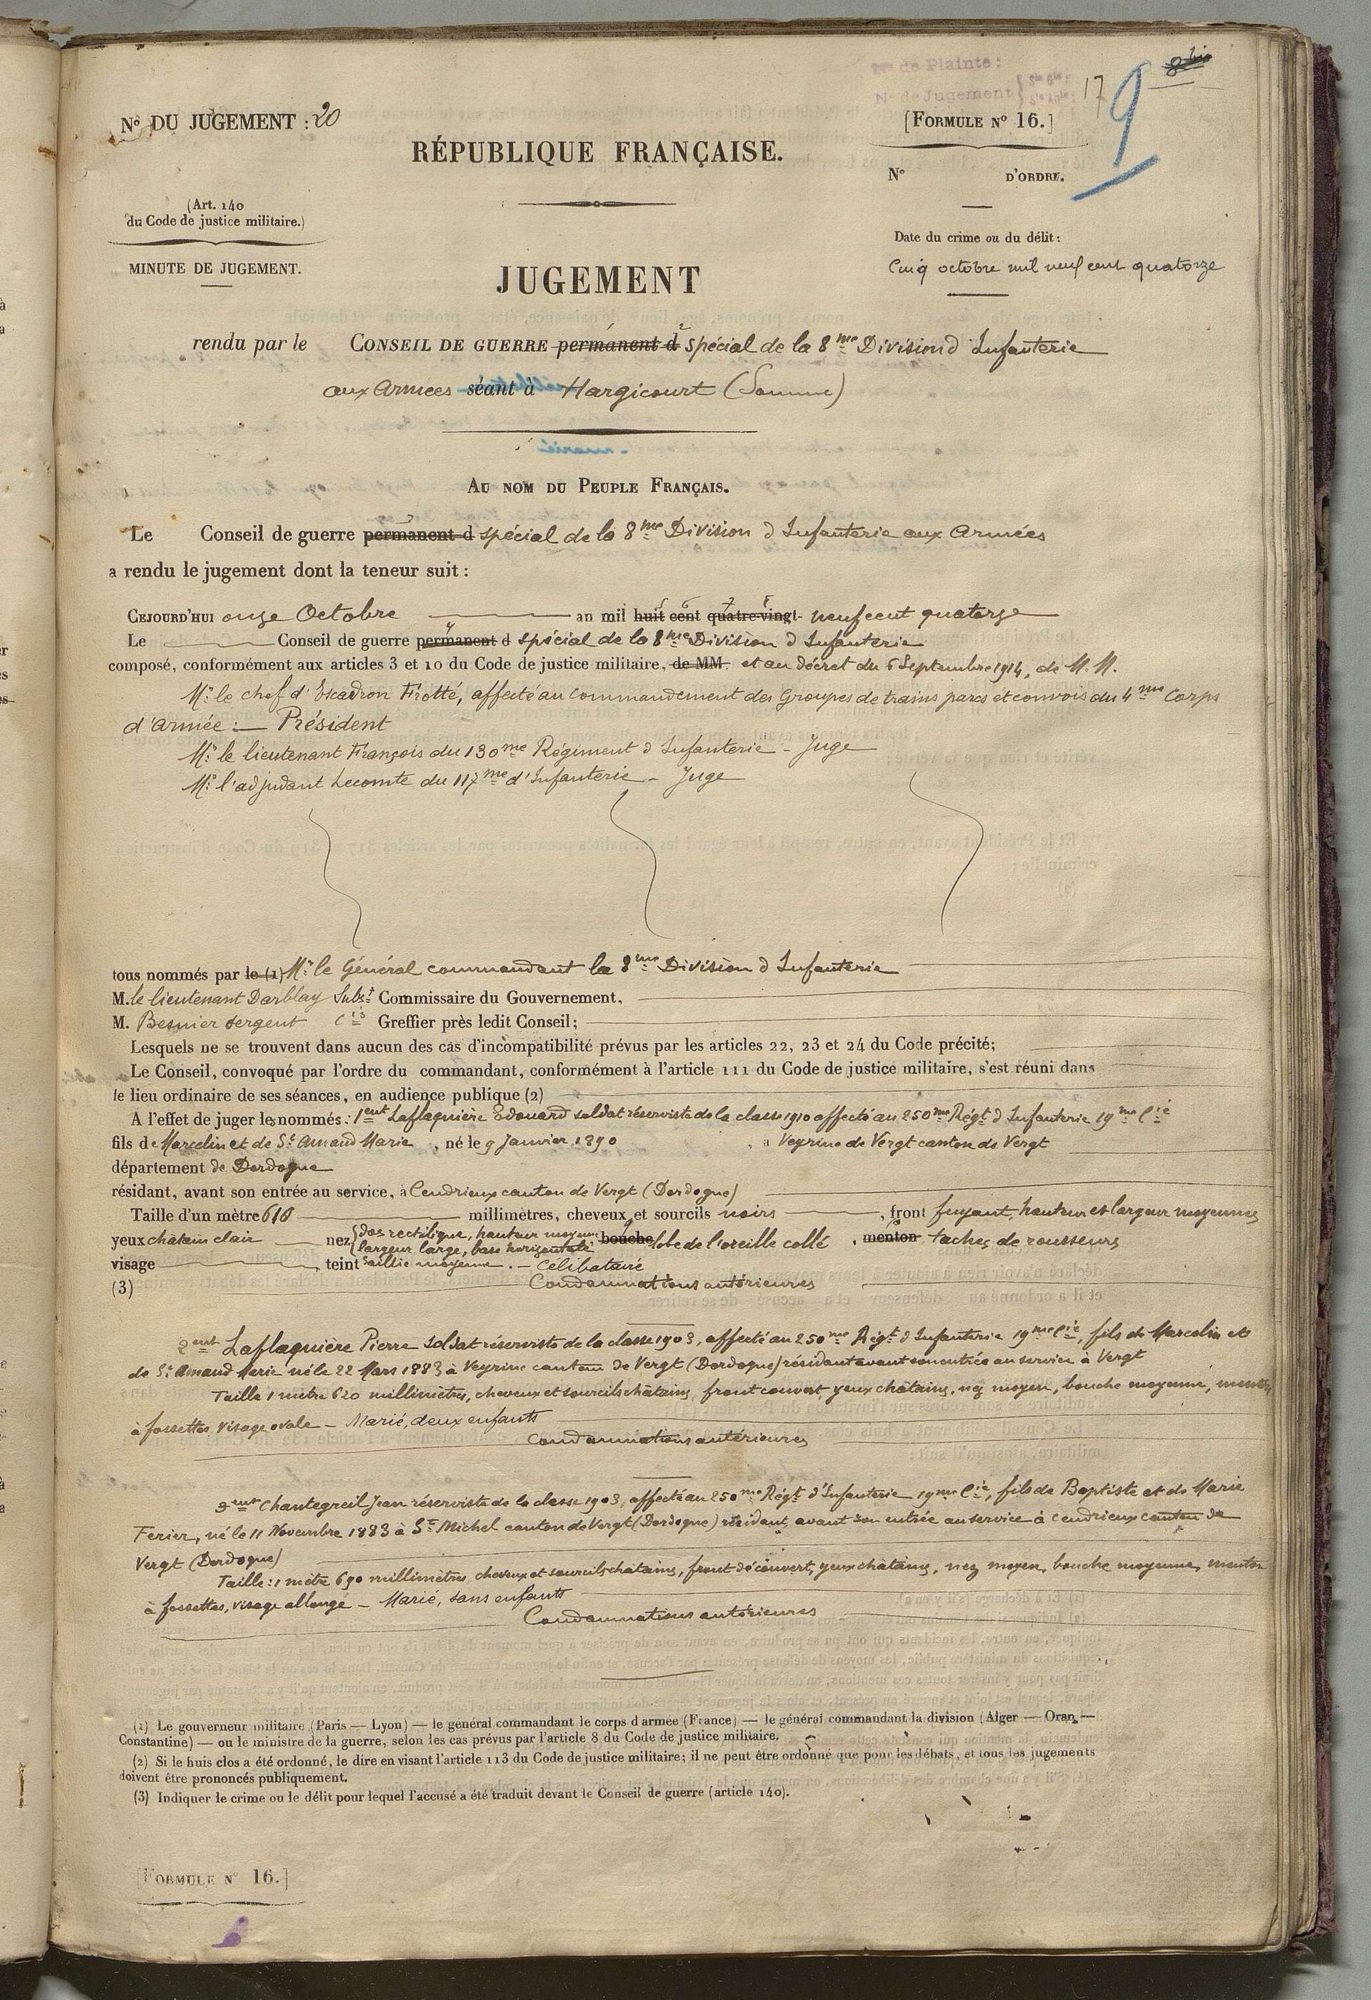 N° de Plainte :
8 bis
N° de Jugement
17
9
N° DU JUGEMENT : 20
[FORMULE N° 16.]
RÉPUBLIQUE FRANÇAISE.
N° D'ORDRE.
(Art. 140
du Code de justice militaire.)
Date du crime ou du délit :
MINUTE DE JUGEMENT.
Cinq octobre mil neuf cent quatorze
JUGEMENT
rendu par le CONSEIL DE GUERRE permanent d spécial de la 8me Division d'Infanterie
aux Armées séant à Hargicourt (Somme)
AU NOM DU PEUPLE FRANÇAIS.
Le Conseil de guerre permanent d spécial de la 8me Division d'Infanterie aux Armées
a rendu le jugement dont la teneur suit :
CEJOURD'HUI onze Octobre an mil huit cent quatre-vingt neuf cent quatorze
Le Conseil de guerre permanent d spécial de la 8me Division d'Infanterie
composé, conformément aux articles 3 et 10 du Code de justice militaire, de MM. et au décret du 6 Septembre 1914, de M.M.
Mr le chef d'Escadron Frotté, affecté au commandement des Groupes de trains parcs et convois du 4me Corps
d'armée :— Président
Mr le lieutenant François du 130me Régiment d'Infanterie - Juge
Mr l'adjudant Lecomte du 117me d'Infanterie - Juge
tous nommés par le (1) Mr le Général commandant la 8me Division d'Infanterie
M. le lieutenant Darblay Subst Commissaire du Gouvernement,
M. Besnier sergent Cis Greffier près ledit Conseil ;
Lesquels ne se trouvent dans aucun des cas d'incompatibilité prévus par les articles 22, 23 et 24 du Code précité ;
Le Conseil, convoqué par l'ordre du commandant, conformément à l'article 111 du Code de justice militaire, s'est réuni dans
le lieu ordinaire de ses séances, en audience publique (2)
A l'effet de juger les nommés : 1ent Laflaquière Edouard soldat réserviste de la classe 1910 affecté au 250me Régt d'Infanterie 19me Cie
fils de Marcelin et de St Amand Marie, né le 9 Janvier 1890, à Veyrine de Vergt canton de Vergt
département de Dordogne
résidant, avant son entrée au service, à Cendrieux canton de Vergt (Dordogne)
Taille d'un mètre 610 millimètres, cheveux et sourcils noirs, front fuyant, hauteur et largeur moyennes
yeux châtain clair nez dos rectiligne, hauteur moyenne, bouche lobe de l'oreille collé, menton taches de rousseurs
largeur large, base horizontale
visage , teint saillie moyenne. — célibataire
(3) Condamnations antérieures
2ent Laflaquière Pierre soldat réserviste de la classe 1903, affecté au 250me Régt d'Infanterie 19me Cie, fils de Marcelin et
de St Amand Marie né le 22 Mars 1883 à Veyrine canton de Vergt (Dordogne) résidant avant son entrée au service à Vergt
Taille 1 mètre 620 millimètres, cheveux et sourcils châtains, front couvert, yeux châtains, nez moyen, bouche moyenne, menton
à fossettes, visage ovale — Marié, deux enfants
Condamnations antérieures
3ent Chantegreil Jean réserviste de la classe 1903, affecté au 250me Régt d'Infanterie 19me Cie, fils de Baptiste et de Marie
Ferier, né le 11 Novembre 1883 à St Michel canton de Vergt (Dordogne) résidant, avant son entrée au service à Cendrieux canton de
Vergt (Dordogne)
Taille : 1 mètre 690 millimètres, cheveux et sourcils châtains, front découvert, yeux châtains, nez moyen, bouche moyenne, menton
à fossettes, visage allongé — Marié, sans enfants
Condamnations antérieures
(1) Le gouverneur militaire (Paris — Lyon) — le général commandant le corps d'armée (France) — le général commandant la division (Alger — Oran —
Constantine) — ou le ministre de la guerre, selon les cas prévus par l'article 8 du Code de justice militaire.
(2) Si le huis clos a été ordonné, le dire en visant l'article 113 du Code de justice militaire ; il ne peut être ordonné que pour les débats, et tous les jugements
doivent être prononcés publiquement.
(3) Indiquer le crime ou le délit pour lequel l'accusé a été traduit devant le Conseil de guerre (article 140).
[FORMULE N° 16.]